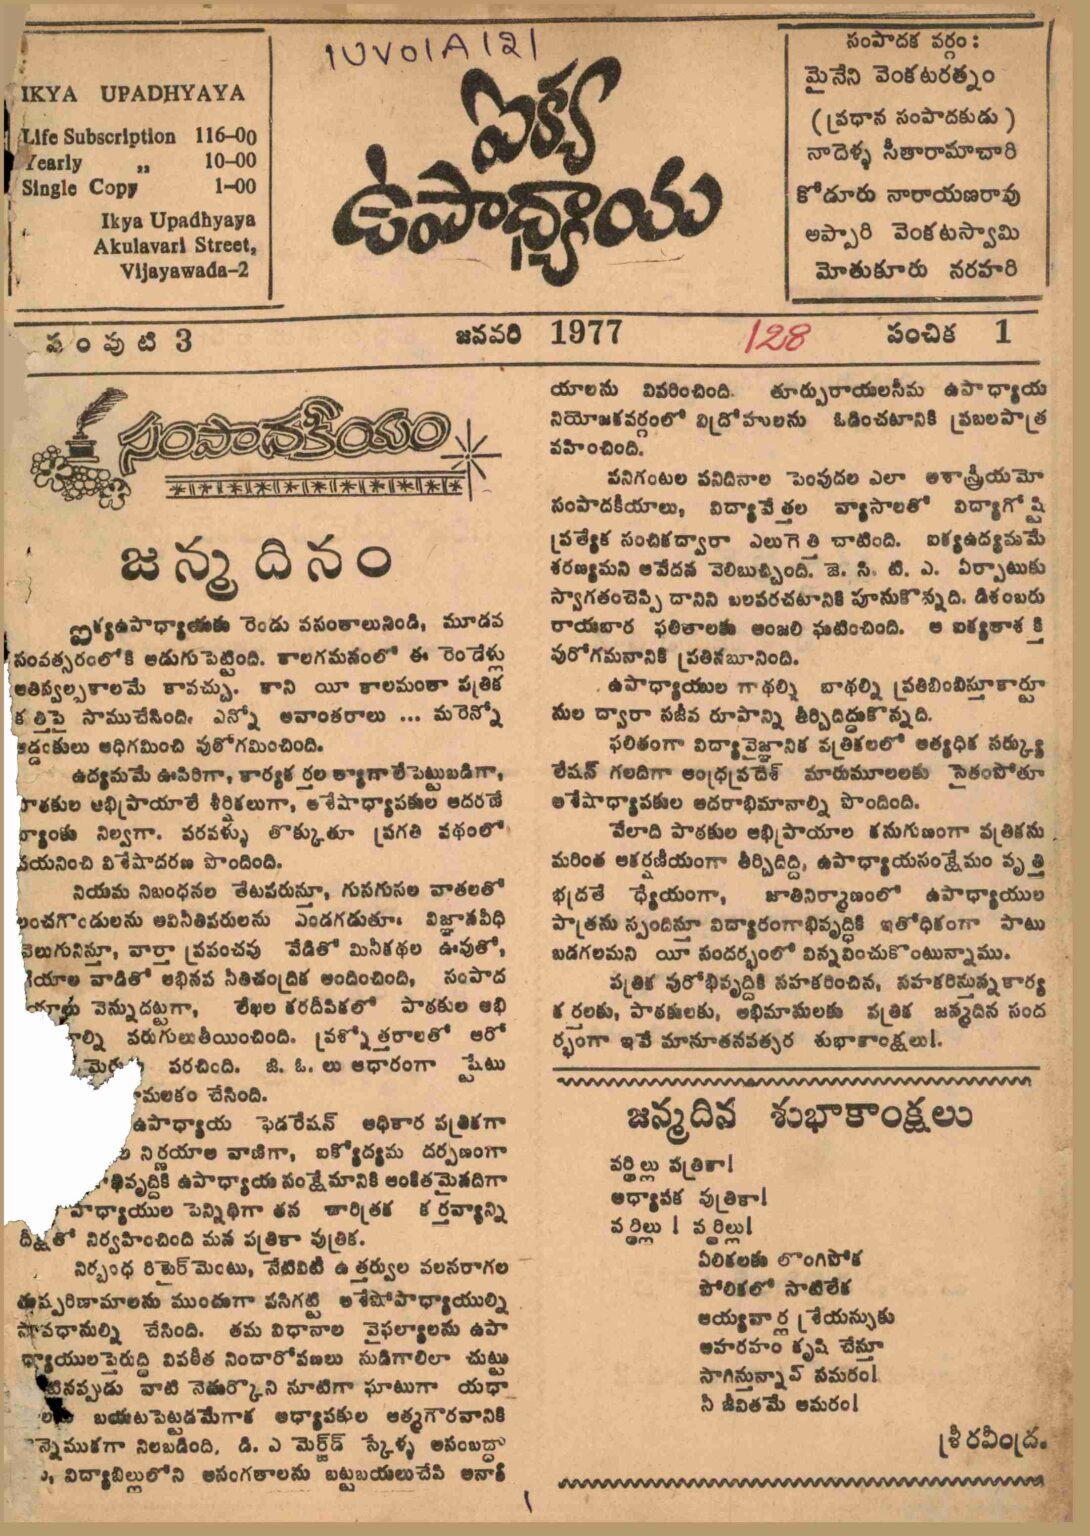 1UV01A121
IKYA UPADHYAYA
Life Subscription 116-00
Yearly „ 10-00
Single Copy 1-00
Ikya Upadhyaya
Akulavari Street,
Vijayawada-2
ఐక్య
ఉపాధ్యాయ
సంపాదక వర్గం :
మైనేని వెంకటరత్నం
( ప్రధాన సంపాదకుడు )
నాదెళ్ళ సీతారామాచారి
కోడూరు నారాయణరావు
అప్పారి వెంకటస్వామి
మోతుకూరు నరహరి
సంపుటి 3
జనవరి 1977
128
సంచిక 1
సంపాదకీయం
జన్మదినం
ఐక్యఉపాధ్యాయకు రెండు వసంతాలునిండి, మూడవ
సంవత్సరంలోకి అడుగుపెట్టింది. కాలగమనంలో ఈ రెండేళ్లు
అతిస్వల్పకాలమే కావచ్చు. కాని యీ కాలమంతా పత్రిక
కత్తిపై సాముచేసింది. ఎన్నో అవాంతరాలు ... మరెన్నో
అడ్డంకులు అధిగమించి పురోగమించింది.
ఉద్యమమే ఊపిరిగా, కార్యకర్తల త్యాగాలేపెట్టుబడిగా,
పాఠకుల అభిప్రాయాలే శీర్షికలుగా, అశేషాధ్యాపకుల ఆదరణే
బ్యాంకు నిల్వగా. పరవళ్ళు తొక్కుతూ ప్రగతి పథంలో
పయనించి విశేషాదరణ పొందింది.
నియమ నిబంధనల తేటపరుస్తూ, గుసగుసల వాతలతో
లంచగొండులను అవినీతిపరులను ఎండగడుతూ. విజ్ఞానవీధి
వెలుగునిస్తూ, వార్తా ప్రపంచపు వేడితో మినీకథల ఊపుతో,
గేయాల వాడితో అభినవ నీతిచంద్రిక అందించింది, సంపాద
వెన్నుదట్టగా, లేఖల కరదీపికలో పాఠకుల అభి
పరుగులుతీయించింది. ప్రశ్నోత్తరాలతో ఆరో
పరచింది. జి. ఓ. లు ఆధారంగా స్టేటు
చేసింది.
ఉపాధ్యాయ ఫెడరేషన్ అధికార పత్రికగా
నిర్ణయాల వాణిగా, ఐక్యోద్యమ దర్పణంగా
ఉపాధ్యాయ సంక్షేమానికి అంకితమైనదిగా
పెన్నిధిగా తన చారిత్రక కర్తవ్యాన్ని
దీక్షతో నిర్వహించింది మన పత్రికా పుత్రిక.
నిర్బంధ రిటైర్‌మెంటు, నేటివిటీ ఉత్తర్వుల వలనరాగల
దుష్పరిణామాలను ముందుగా పసిగట్టి అశేషోపాధ్యాయుల్ని
సావధానుల్ని చేసింది. తమ విధానాల వైఫల్యాలను ఉపా
ధ్యాయులపైరుద్ది విపరీత నిందారోపణలు సుడిగాలిలా చుట్టు
వాటి నెదుర్కొని సూటిగా ఘాటుగా యథా
బయటపెట్టడమేగాక అధ్యాపకుల ఆత్మగౌరవానికి
వెన్నెముకగా నిలబడింది. డి. ఎ మెర్జ్‌డ్ స్కేళ్ళ అసంబద్ధా
విద్యాబిల్లులోని అసంగతాలను బట్టబయలుచేసి అనాకీ
యాలను వివరించింది. తూర్పురాయలసీమ ఉపాధ్యాయ
నియోజకవర్గంలో విద్రోహులను ఓడించటానికి ప్రబలపాత్ర
వహించింది.
పనిగంటల పనిదినాల పెంపుదల ఎలా అశాస్త్రీయమో
సంపాదకీయాలు, విద్యావేత్తల వ్యాసాలతో విద్యాగోష్టి
ప్రత్యేక సంచికద్వారా ఎలుగెత్తి చాటింది. ఐక్యఉద్యమమే
శరణ్యమని ఆవేదన వెలిబుచ్చింది. జె. సి. టి. ఎ. ఏర్పాటుకు
స్వాగతంచెప్పి దానిని బలపరచటానికి పూనుకొన్నది. డిశంబరు
రాయబార ఫలితాలకు అంజలి ఘటించింది. ఆ ఐక్యతాశక్తి
పురోగమనానికి ప్రతినబూనింది.
ఉపాధ్యాయుల గాథల్ని బాథల్ని ప్రతిబింబిస్తూకార్టూ
నుల ద్వారా సజీవ రూపాన్ని తీర్చిదిద్దుకొన్నది.
ఫలితంగా విద్యావైజ్ఞానిక పత్రికలలో అత్యధిక సర్క్యు
లేషన్ గలదిగా ఆంధ్రప్రదేశ్ మారుమూలలకు సైతంపోతూ
అశేషాధ్యాపకుల ఆదరాభిమానాల్ని పొందింది.
వేలాది పాఠకుల అభిప్రాయాల కనుగుణంగా పత్రికను
మరింత ఆకర్షణీయంగా తీర్చిదిద్ది, ఉపాధ్యాయసంక్షేమం వృత్తి
భద్రతే ధ్యేయంగా, జాతినిర్మాణంలో ఉపాధ్యాయుల
పాత్రను స్పందిస్తూ విద్యారంగాభివృద్ధికి ఇతోధికంగా పాటు
బడగలమని యీ సందర్భంలో విన్నవించుకొంటున్నాము.
పత్రిక పురోభివృద్ధికి సహకరించిన, సహకరిస్తున్నకార్య
కర్తలకు, పాఠకులకు, అభిమానులకు పత్రిక జన్మదిన సంద
ర్భంగా ఇవే మానూతనవత్సర శుభాకాంక్షలు!.
జన్మదిన శుభాకాంక్షలు
వర్థిల్లు పత్రికా!
అధ్యాపక పుత్రికా!
వర్థిల్లు ! వర్థిల్లు!
ఏలికలకు లొంగిపోక
పోలికలో సాటిలేక
అయ్యవార్ల శ్రేయస్సుకు
అహరహం కృషి చేస్తూ
సాగిస్తున్నావ్ సమరం!
నీ జీవితమే అమరం!
శ్రీ రవీంద్ర.
1